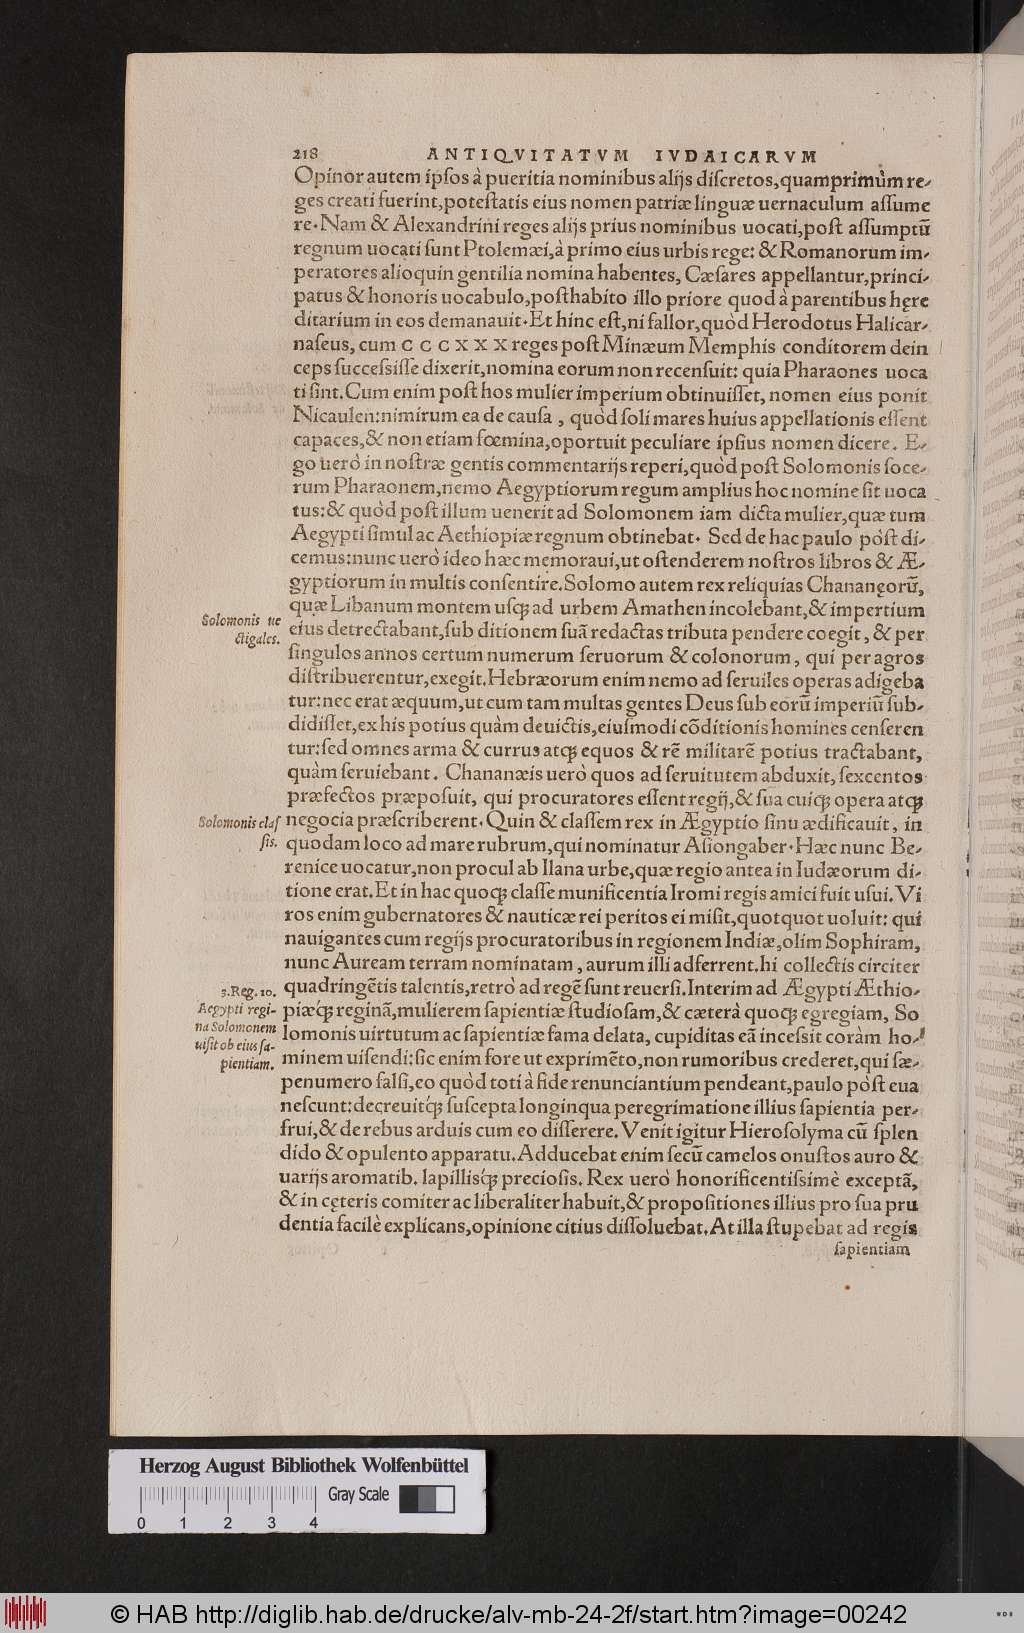 218 ANTIQVITATVM IVDAICARVM
Opinor autem ipsos à pueritia nominibus alijs discretos, quamprimùm re-
ges creati fuerint, potestatis eius nomen patriæ linguæ uernaculum assume
re. Nam & Alexandrini reges alijs prius nominibus uocati, post assumptũ
regnum uocati sunt Ptolemæi, à primo eius urbis rege: & Romanorum im-
peratores alioquin gentilia nomina habentes, Cæsares appellantur, princi-
patus & honoris uocabulo, posthabito illo priore quod à parentibus hęre
ditarium in eos demanauit. Et hinc est, ni fallor, quòd Herodotus Halicar-
naseus, cum CCCXXX reges post Minæum Memphis conditorem dein
ceps successisse dixerit, nomina eorum non recensuit: quia Pharaones uoca
ti sint. Cum enim post hos mulier imperium obtinuisset, nomen eius ponit
Nicaulen: nimirum ea de causa, quòd soli mares huius appellationis essent
capaces, & non etiam fœmina, oportuit peculiare ipsius nomen dicere. E-
go uerò in nostræ gentis commentarijs reperi, quòd post Solomonis soce-
rum Pharaonem, nemo Aegyptiorum regum amplius hoc nomine sit uoca
tus: & quòd post illum uenerit ad Solomonem iam dicta mulier, quæ tum
Aegypti simul ac Aethiopiæ regnum obtinebat. Sed de hac paulo pòst di-
cemus: nunc uerò ideo hæc memoraui, ut ostenderem nostros libros & Æ-
gyptiorum in multis consentire. Solomo autem rex reliquias Chananęorũ,
quæ Libanum montem usq; ad urbem Amathen incolebant, & impertium
Solomonis ue
ctigales.
eius detrectabant, sub ditionem suã redactas tributa pendere coegit, & per
singulos annos certum numerum seruorum & colonorum, qui per agros
distribuerentur, exegit. Hebræorum enim nemo ad seruiles operas adigeba
tur: nec erat æquum, ut cum tam multas gentes Deus sub eorũ imperiũ sub-
didisset, ex his potius quàm deuictis, eiusmodi cõditionis homines censeren
tur: sed omnes arma & currus atq; equos & rẽ militarẽ potius tractabant,
quàm seruiebant. Chananæis uerò quos ad seruitutem abduxit, sexcentos
præfectos præposuit, qui procuratores essent regij, & sua cuiq; opera atq;
Solomonis clas
sis.
negocia præscriberent. Quin & classem rex in Ægyptio sinu ædificauit, in
quodam loco ad mare rubrum, qui nominatur Asiongaber. Hæc nunc Be-
renice uocatur, non procul ab Ilana urbe, quæ regio antea in Iudæorum di-
tione erat. Et in hac quoq; classe munificentia Iromi regis amici fuit usui. Vi
ros enim gubernatores & nauticæ rei peritos ei misit, quotquot uoluit: qui
nauigantes cum regijs procuratoribus in regionem Indiæ, olim Sophiram,
nunc Auream terram nominatam, aurum illi adferrent. hi collectis circiter
3. Reg. 10.
Aegypti regi-
na Solomonem
uisit ob eius sa-
pientiam.
quadringẽtis talentis, retrò ad regẽ sunt reuersi. Interim ad Ægypti Æthio-
piæq́; reginã, mulierem sapientiæ studiosam, & cæterà quoq; egregiam, So
lomonis uirtutum ac sapientiæ fama delata, cupiditas eã incessit coràm ho-
minem uisendi: sic enim fore ut exprimẽto, non rumoribus crederet, qui sæ-
penumero falsi, eo quòd toti à fide renunciantium pendeant, paulo pòst eua
nescunt: decreuitq́; suscepta longinqua peregrimatione illius sapientia per-
frui, & de rebus arduis cum eo disserere. Venit igitur Hierosolyma cũ splen
dido & opulento apparatu. Adducebat enim secũ camelos onustos auro &
uarijs aromatib. lapillisq́; preciosis. Rex uerò honorificentissimè exceptã,
& in cęteris comiter ac liberaliter habuit, & propositiones illius pro sua pru
dentia facilè explicans, opinione citius dissoluebat. At illa stupebat ad regis
sapientiam
Herzog August Bibliothek Wolfenbüttel
Gray Scale
0 1 2 3 4
© HAB http://diglib.hab.de/drucke/alv-mb-24-2f/start.htm?image=00242